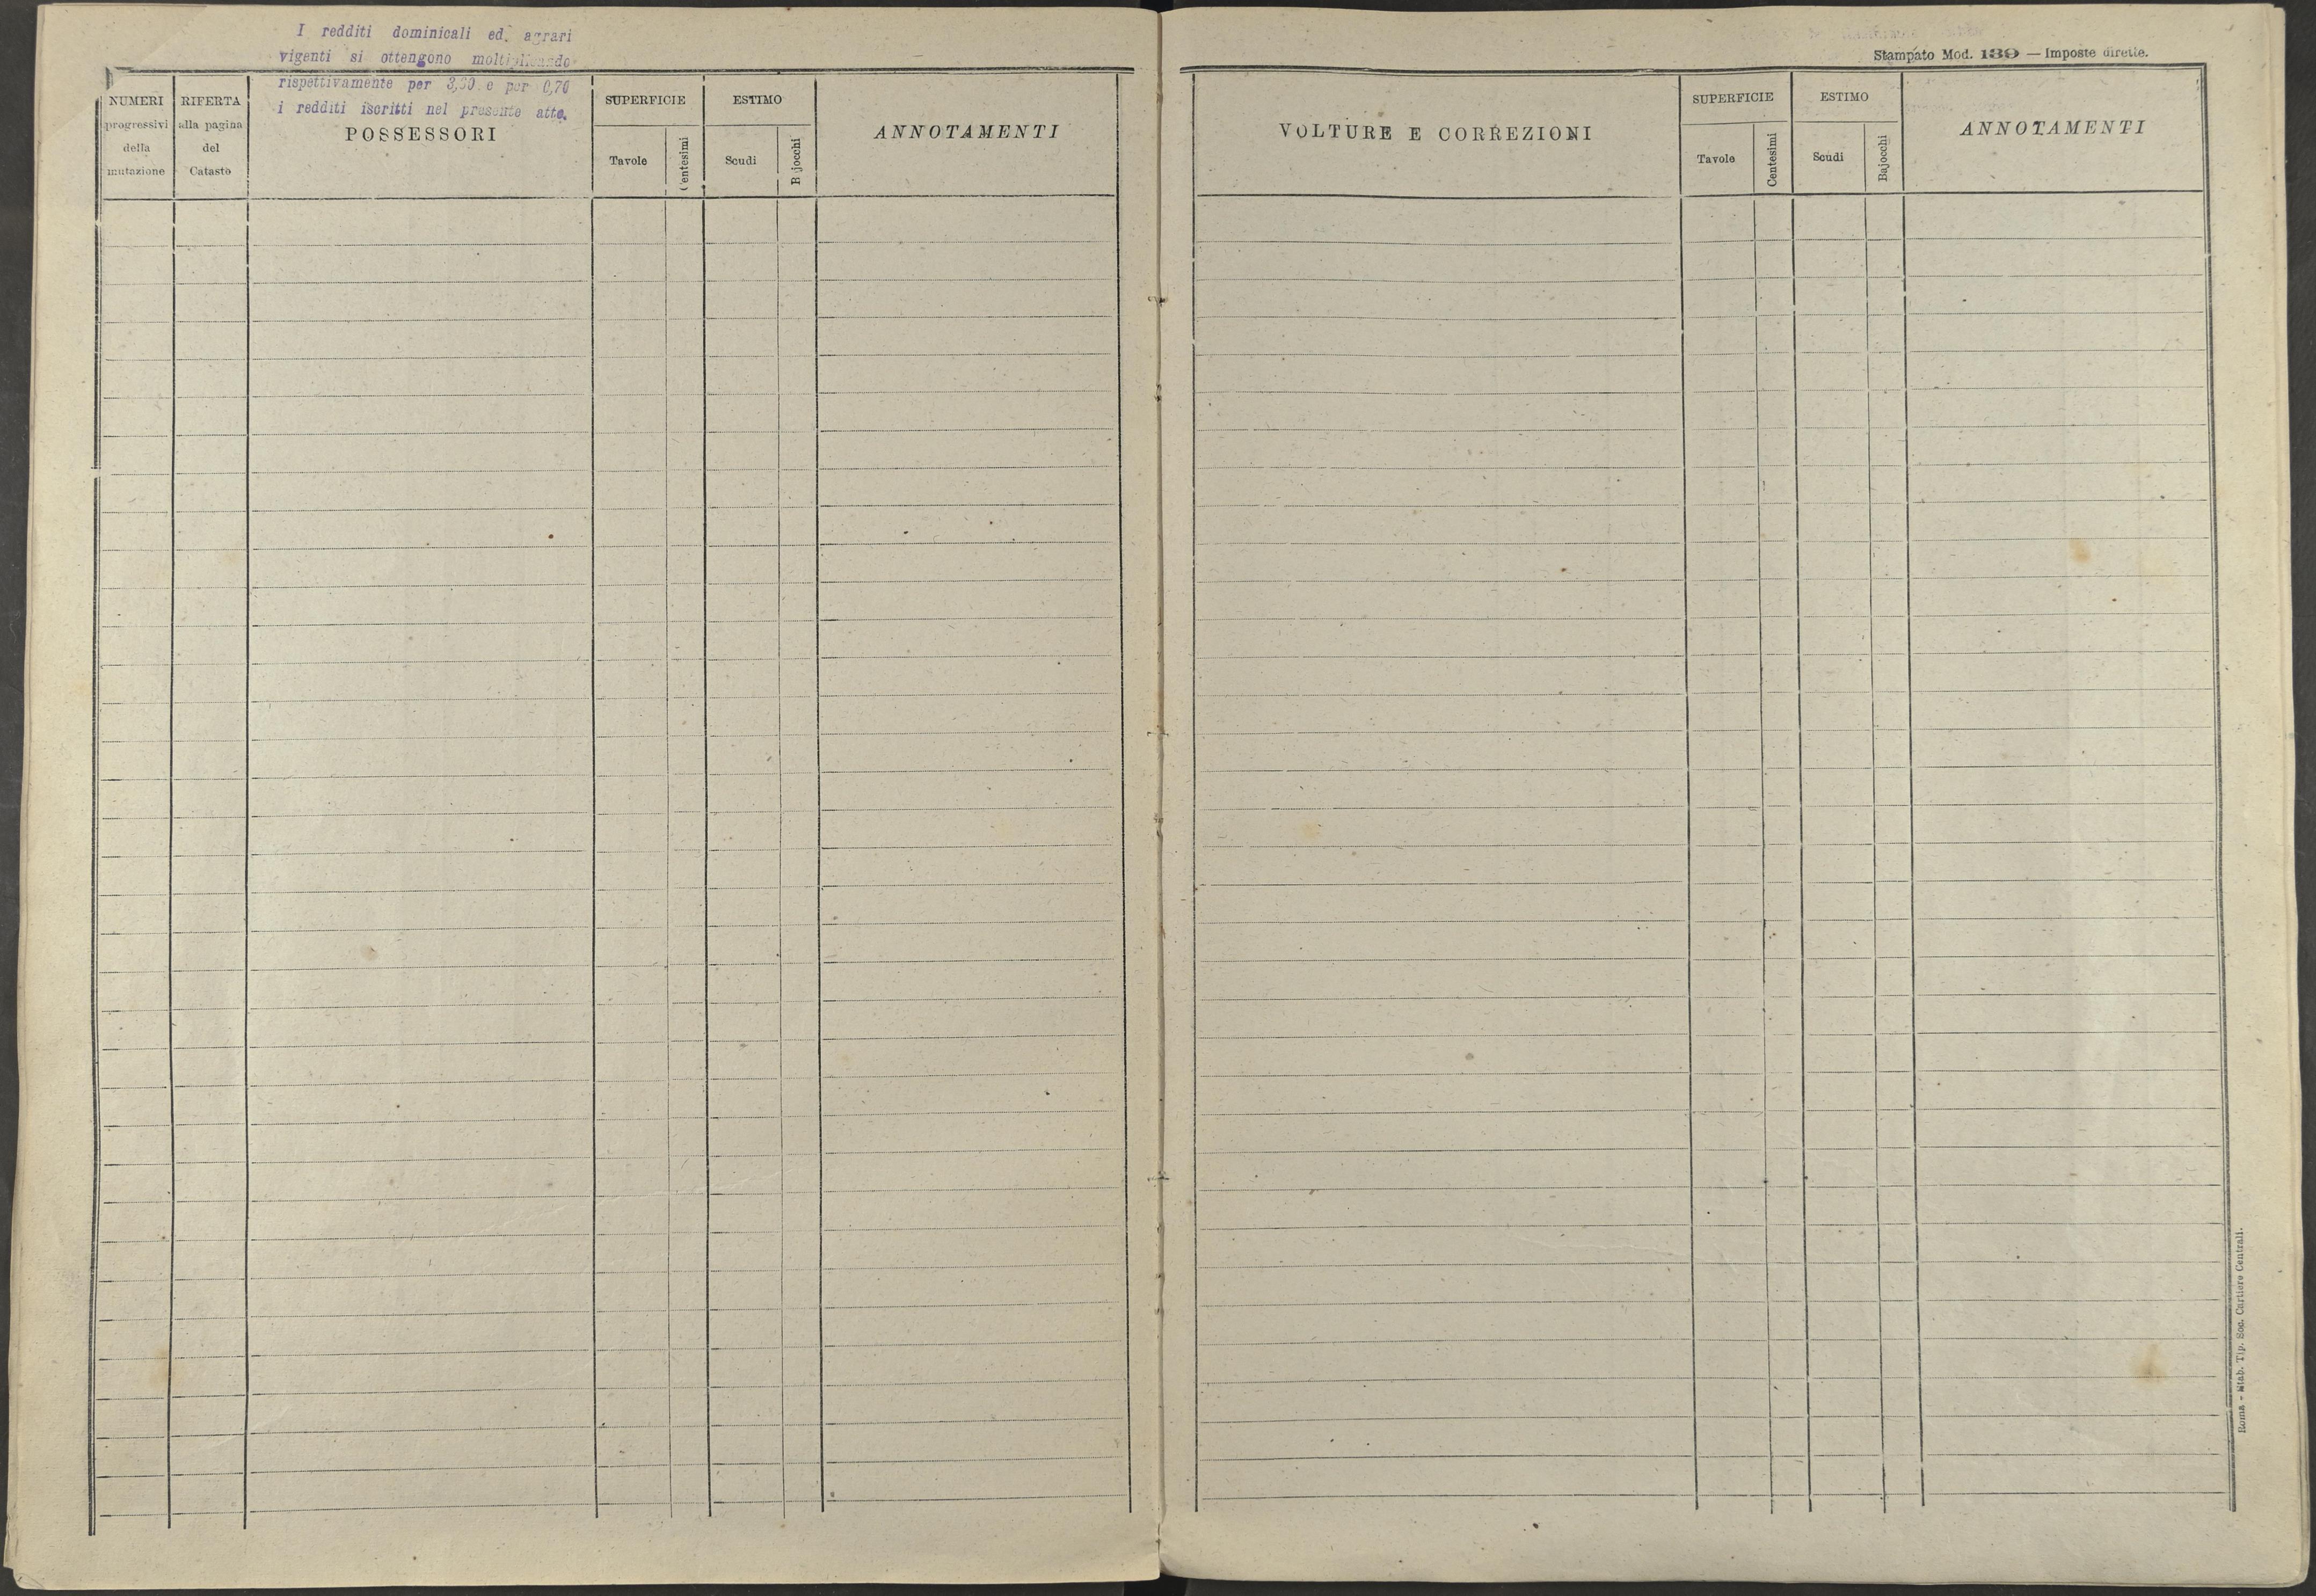 I redditi dominicali ed. agrari
vigenti si ottengono moltiplicando
rispettivamente per e per 0,70
i redditi iscritti nel presente atto.
NUMERI
progressivi
della
mutazione
RIFERTA
alla pagina
del
Catasto
POSSESSORI
SUPERFICIE
Tavole
Centesimi
ESTIMO
Scudi
Bajocchi
ANNOTAMENTI
Stampato Mod. 139 — Imposte dirette.
VOLTURE E CORREZIONI
SUPERFICIE
Tavole
Centesimi
ESTIMO
Scudi
Bajocchi
ANNOTAMENTI
Roma - Stab. Tip. Soc. Cartiere Centrali.